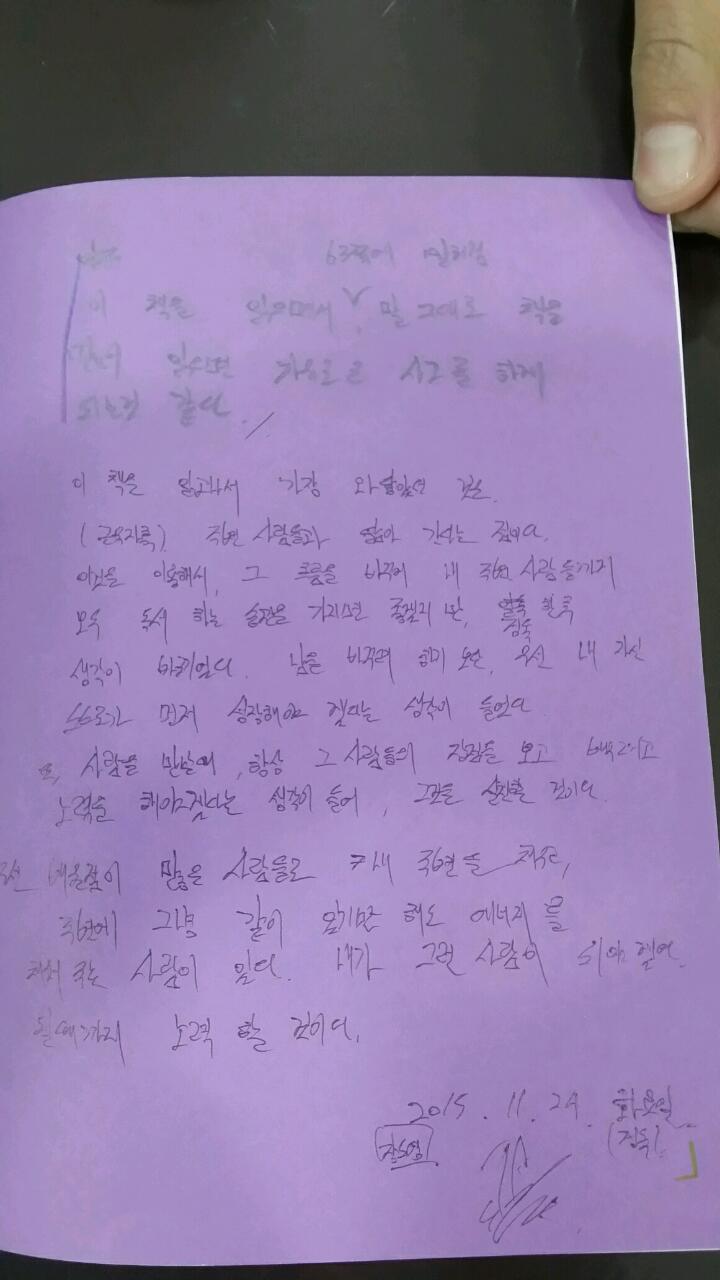 63쪽에
이 책을 읽으면서 말 그대로 책을
읽으면 사고를 하게
되는것 같다.
이 책을 읽고나서 가장 와닿았던 것은
(근묵자흑). 주변 사람들과 닮아 간다는 점이다.
이것을 이용해서, 그 흐름을 바꾸어 내 주변 사람들까지
모두 독서 하는 습관을 가지면 좋겠지만,
생각이 바뀌었다. 남을 바꾸려 하기 보단, 우선 내 자신
스스로가 먼저 성장해야 겠다는 생각이 들었다
사람을 만날때, 항상 그 사람들의 장점을 보고 배우려고
노력을 해야겠다는 생각이 들어, 그것을 실천할 것이다.
배울점이 많은 사람들로 내 주변을 채우고,
주변에 그냥 같이 있기만 해도 에너지를
주는 사람이 있다. 내가 그런 사람이 되야 겠어.
될때까지 노력 할 것이다.
2015. 11. 24. 화요일
(정독).